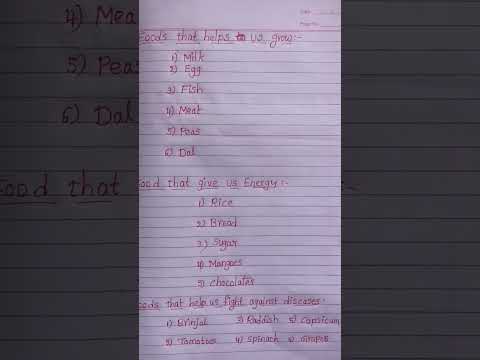 Date
Foods that helps to us grow:-
1) Milk
2) Egg
3) Fish
4) Meat
5) Peas
6) Dal
Food that give us Energy:-
1) Rice
2) Bread
3) Sugar
4) Mangoes
5) Chocolates
Foods that help us fight against diseases:-
1) Brinjal 3) Raddish 5) Capsicum
2) Tomatoes 4) Spinach 6) Grapes
4) Meat
5) Peas
6) Dal
Food that